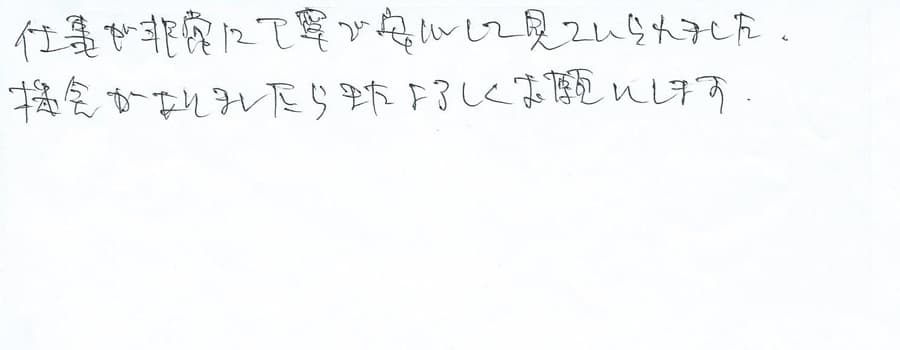 仕事が非常に丁寧で安心して見ていられました.
機会がありましたらまたよろしくお願いします.